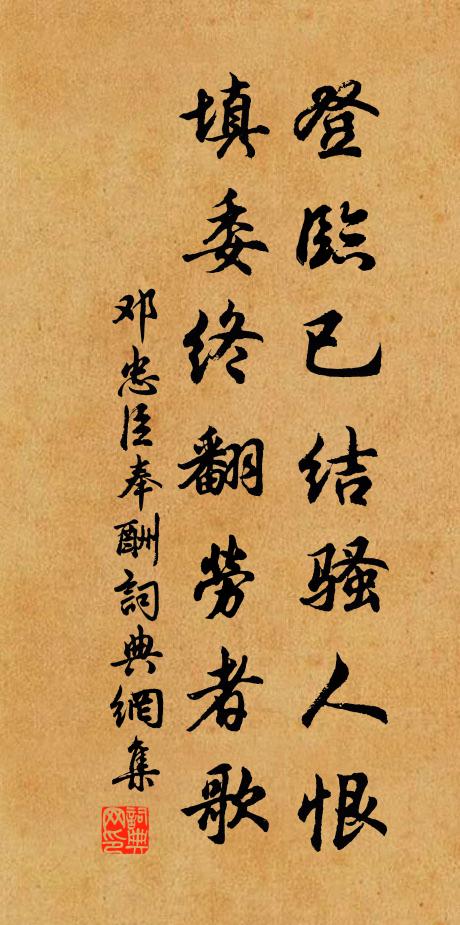 登臨已结骚人恨
填委终翻勞者歌
邓忠臣奉酬詞典網集
詞典网印